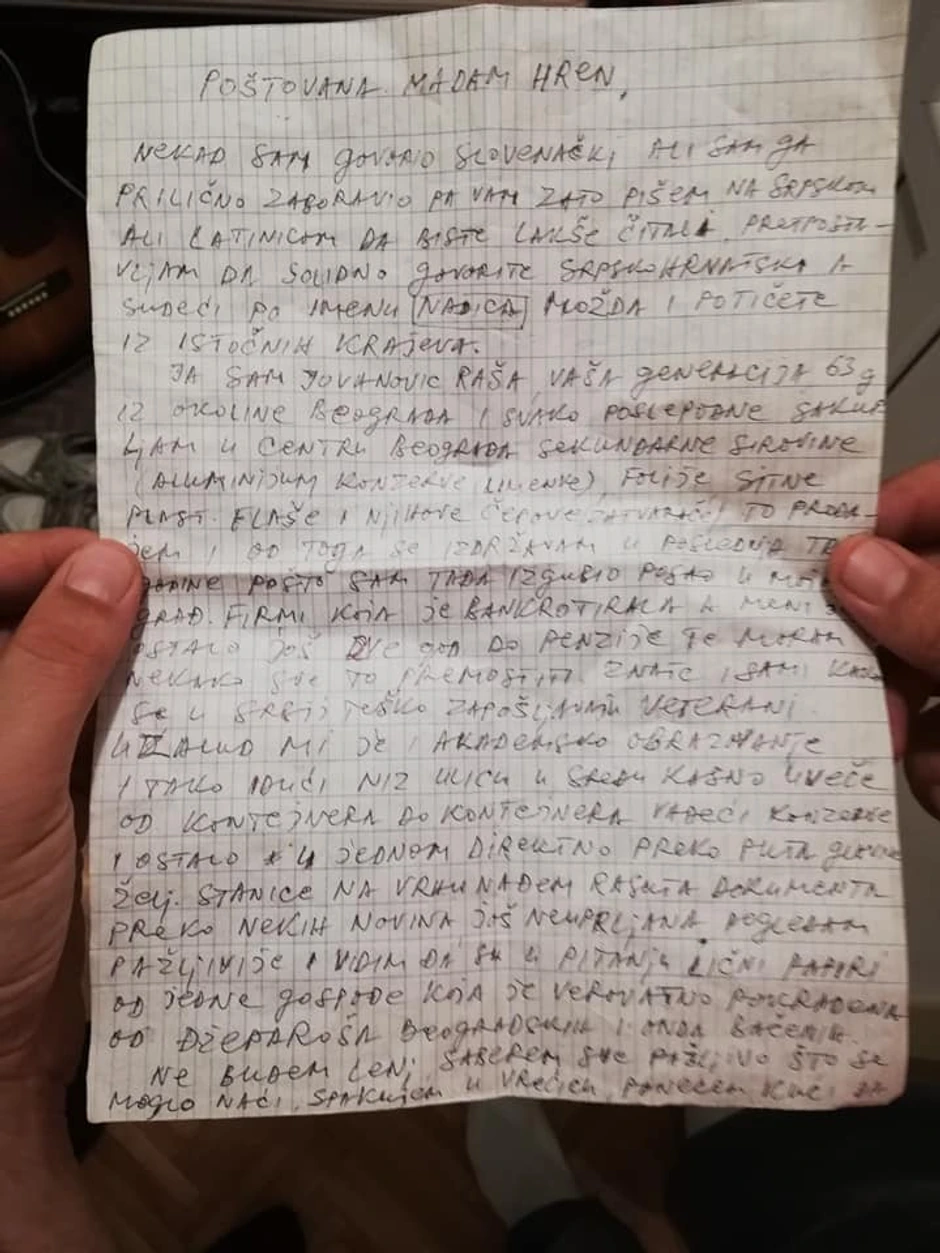 POŠTOVANA MADAM HREN,
NEKAD SAM GOVORIO SLOVENAČKI ALI SAM GA
PRILIČNO ZABORAVIO PA VAM ZATO PIŠEM NA SRPSKOM
ALI LATINICOM DA BISTE LAKŠE ČITALI. PRETPOSTA-
VLJAM DA SOLIDNO GOVORITE SRPSKOHRVATSKI A
SUDEĆI PO IMENU NADICA MOŽDA I POTIČETE
IZ ISTOČNIH KRAJEVA.
JA SAM JOVANOVIC RAŠA, VAŠA GENERACIJA 63 g
IZ OKOLINE BEOGRADA I SVAKO POSLEPODNE SAKUP
LJAM U CENTRU BEOGRADA SEKUNDARNE SIROVINE
(ALUMINIJUM KONZERVE LIMENKE), FOLIJE SITNE
PLAST. FLAŠE I NJIHOVE ČEPOVE ZATVARAČE) TO PRODA-
JEM I OD TOGA SE IZDRŽAVAM U POSLEDNJA
GODINE POŠTO SAM TADA IZGUBIO POSAO U
GRAĐ. FIRMI KOJA JE BANKROTIRALA A MENI
OSTALO JOŠ DVE GOD DO PENZIJE TE MORAM
NEKAKO SVE TO PREMOSTITI. ZNATE I SAMI KAKO
SE U SRBIJI TEŠKO ZAPOŠLJAVAJU VETERANI.
UZALUD MI JE I AKADEMSKO OBRAZOVANJE
I TAKO IDUĆI NIZ ULICU U SREDU KASNO UVEČE
OD KONTEJNERA DO KONTEJNERA VADEĆI KONZERVE
I OSTALO U JEDNOM DIREKTNO PREKO PUTA GLAVNE
ŽELJ. STANICE NA VRHU NAĐEM RASUTA DOKUMENTA
PREKO NEKIH NOVINA JOŠ NEUPRLJANA. POGLEDAM
PAŽLJIVIJE I VIDIM DA SU U PITANJU LIČNI PAPIRI
OD JEDNE GOSPOĐE KOJA JE VEROVATNO POKRADENA
OD DŽEPAROŠA BEOGRADSKIH I ONDA BAČENIH.
NE BUDEM LENJ, SABEREM SVE PAŽLJIVO ŠTO SE
MOGLO NAĆI, SPAKUJEM U VREĆICU, PONESEM KUĆI